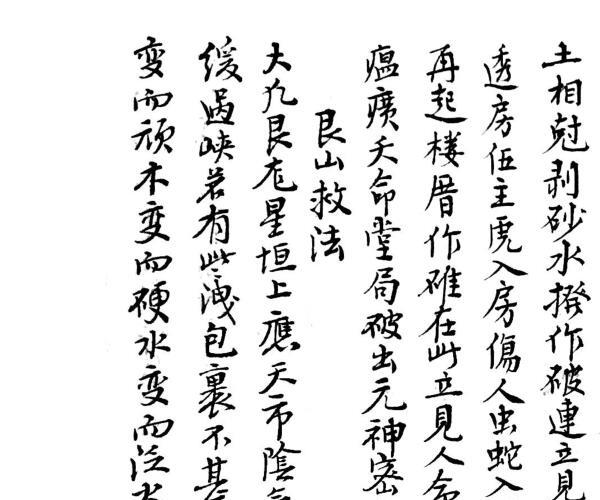 土相尅剥砂水撥作破連立見
透房伍主虎入房傷人虫蛇入
再起楼厝作碓在此立見人命
瘟癀夭命堂局破出元神密
艮山救法
大凡艮龙星垣上應天市陰
缓過峡若有些洩包裹不甚
变而顽木变而硬水变而泛